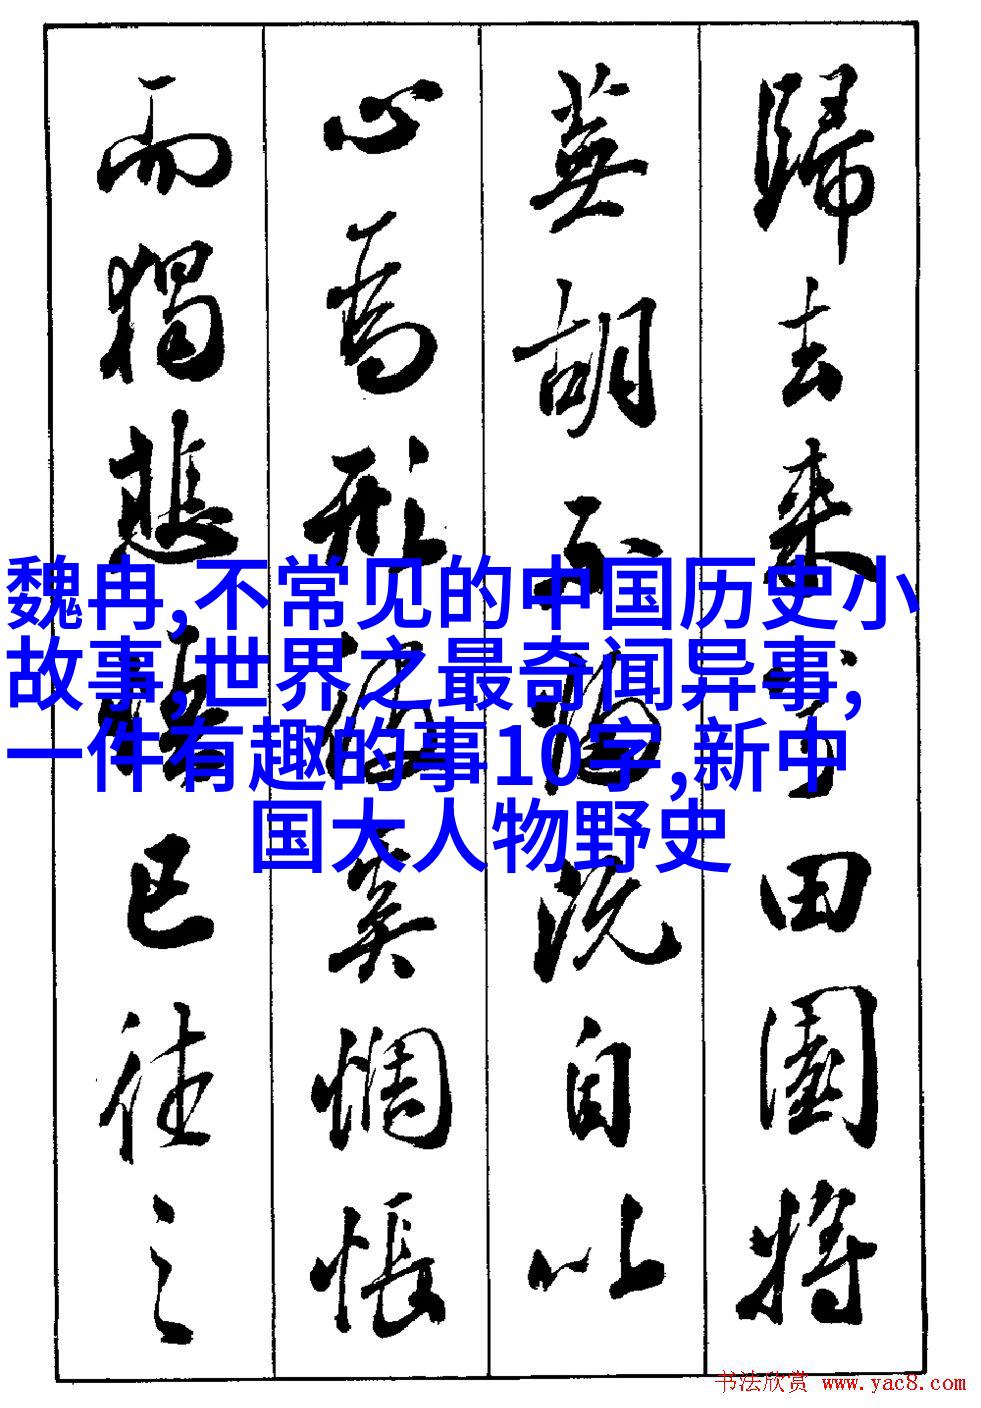 歸去来兮田園將
蕪胡不歸既自以
心為形役奚惆悵
而獨悲已往之
魏冉,不常见的中国历史小
故事,世界之最奇闻异事;
一件有趣的事10字,新中
国大人物野史
书法欣赏 www.yac8.com